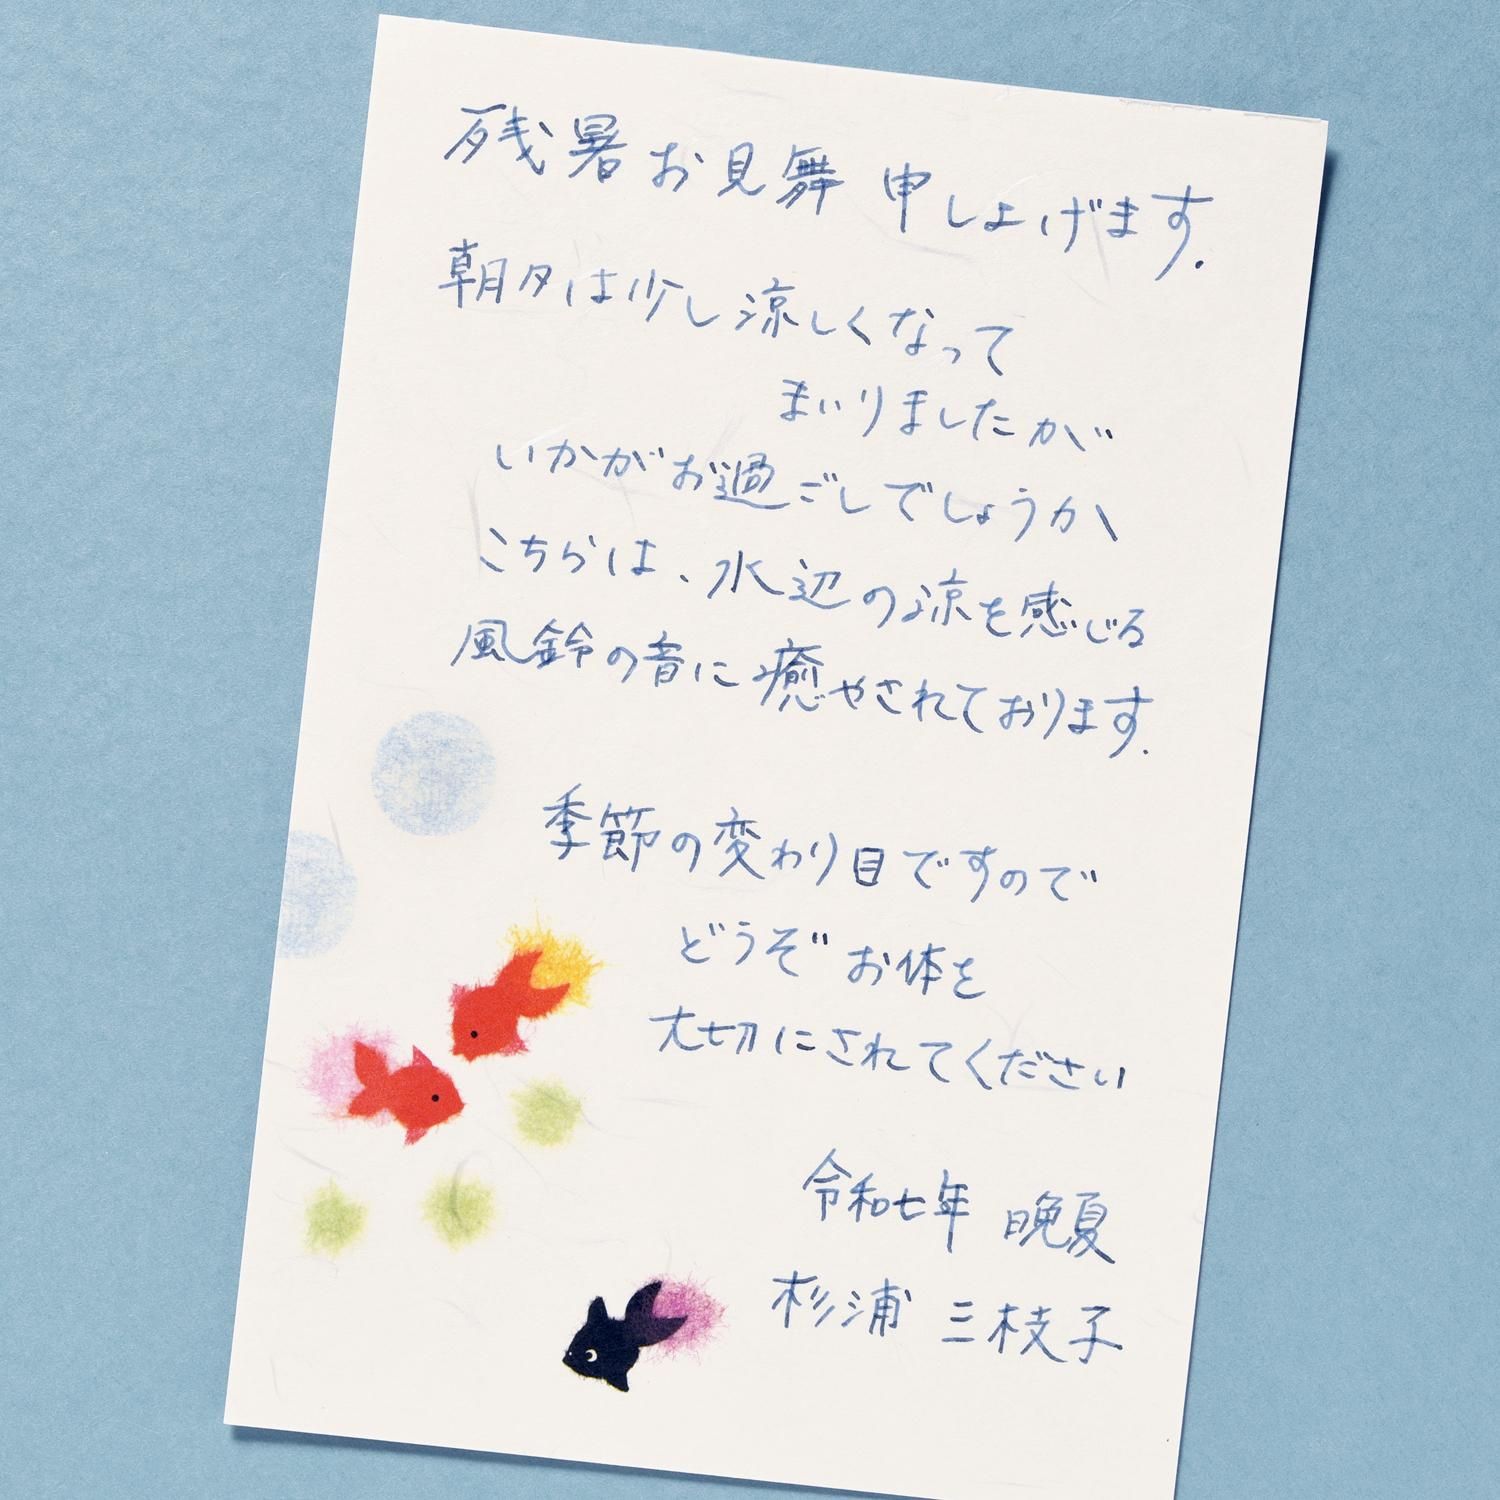 残暑お見舞 申し上げます.
朝夕は少し涼しくなって
まいりましたが
いかがお過ごしでしょうか
こちらは、水辺の涼を感じる
風鈴の音に癒やされております.
季節の変わり目ですので
どうぞお体を
大切にされてください
令和七年 晩夏
杉浦 三枝子